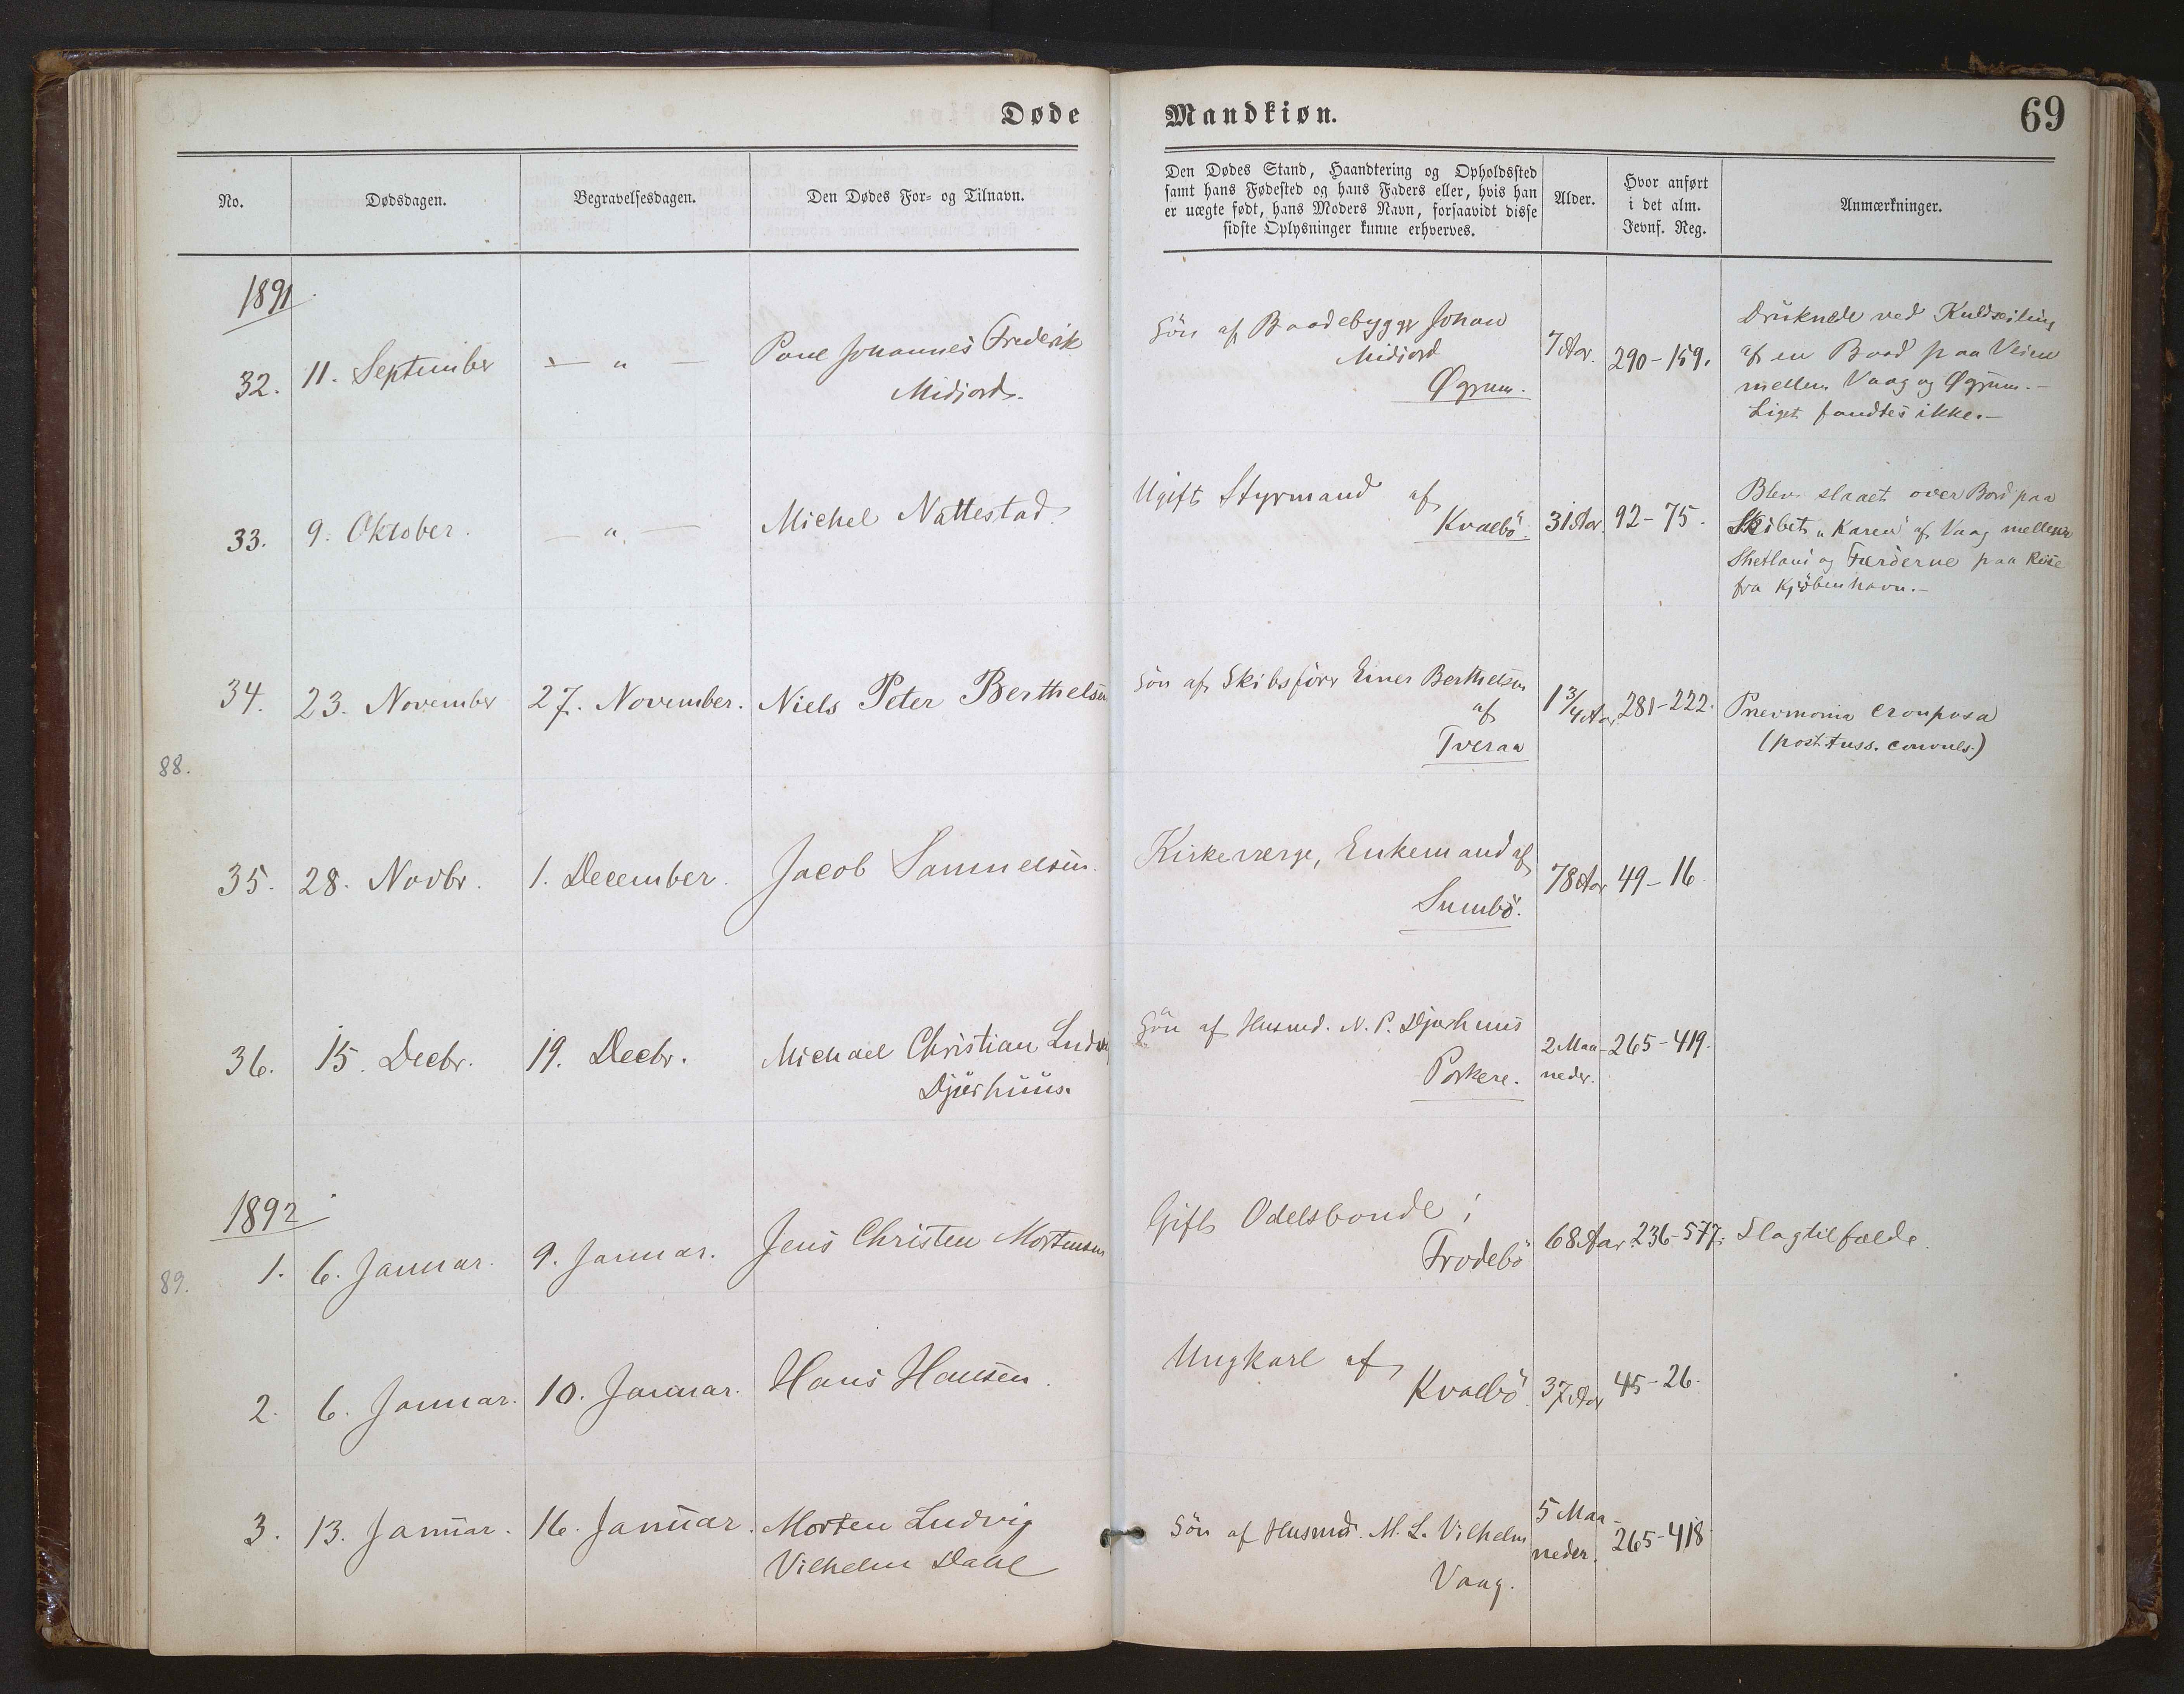 Døde Mandkiøn. 69
No. Dødsdagen. Begravelsesdagen. Den Dødes For- og Tilnavn.
Den Dødes Stand, Haandtering og Opholdssted
samt hans Fødested og hans Faders eller, hvis han
er uægte født, hans Moders Navn, forsaavidt disse
sidste Oplysninger kunne erhverves.
Alder.
Hvor anført
i det alm.
Jevnf. Reg.
Anmærkninger.
1891
32. 11. September — " — Poul Johannes Frederik
Midjord.
Sön af Baadebygger Johan
Midjord
Øgrum.
7 Aar. 290-159.
Druknede ved Kuldseiling
af en Baad paa Veien
mellem Vaag og Øgrum.-
Liget fandtes ikke.-
33. 9. Oktober. — " — Michel Nattestad
Ugift Styrmand af
Kvalbö.
31 Aar. 92-75.
Blev slaaet over Bord paa
Skibet "Karen" af Vaag mellem
Shetland og Færöerne paa Reise
fra Kjöbenhavn.-
34. 23. November 27. November. Niels Peter Berthelsen
Sön af Skibsförer Einer Berthelsen
af
Tveraa
1 3/4 Aar 281-222.
Pnevmonia crouposa
(post tuss. convuls.)
88.
35. 28. Novbr. 1. December. Jacob Samuelsen.
Kirkeværge, Enkemand af
Sumbö.
78 Aar 49-16.
36. 15. Decbr. 19. Decbr. Michael Christian Ludvig
Djurhuus.
Sön af Husmd. N. P. Djurhuus
Porkere.
2 Maa-
neder.
265-419.
1892
89. 1. 6. Januar. 9. Januar. Jens Christen Mortensen
Gift Odelsbonde i
Frodebö
68 Aar. 236-577. Slagtilfælde.
2. 6. Januar. 10. Januar. Hans Hansen.
Ungkarl af
Kvalbö.
37 Aar 45-26.
3. 13. Januar. 16. Januar. Morten Ludvig
Vilhelm Dahl
Sön af Husmd. M. L. Vilhelm
Vaag.
5 Maa-
neder.
265-418